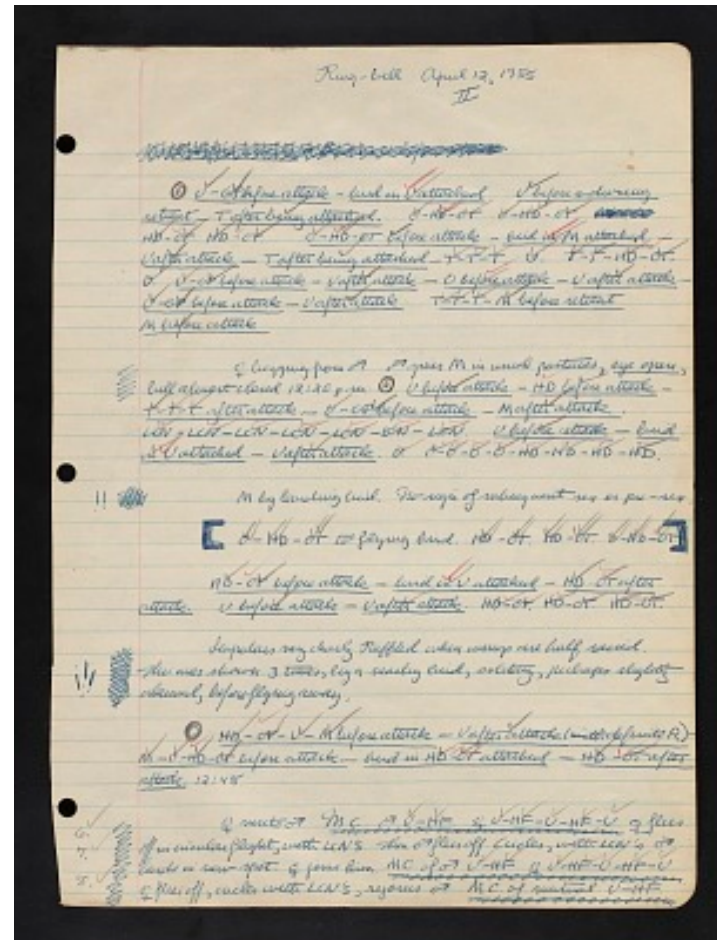 Ring-bill April 12, 1955
II
① U-OT before attack - bird in U attacked U before & during
retreat - T after being attacked. U-HD-OT U-HD-OT
HD-OT HD-OT U-HD-OT before attack - bird in M attacked -
U after attack - T after being attacked - T-T-T U T-T-HD-OT.
U U-OT before attack - U after attack - U before attack - U after attack -
U-OT before attack - U after attack T-T-T-M before retreat
M before attack
♀ begging from ♂ ♂ gives M in usual postures, eye open,
bill almost closed 12:20 p.m. ① U before attack - HD before attack -
T-T-T after attack - U-OT before attack - M after attack.
LCN-LCN-LCN-LCN-LCN-LCN-LCN U before attack - bird
in U attacked - U after attack. U U-U-U-HD-HD-HD-HD.
!! M by landing bird. No sign of subsequent sex or pre-sex
[U-HD-OT to flying bird. HD-OT. HD-OT. U-HD-OT]
HD-OT before attack - bird in U attacked - HD-OT after
attack. U before attack - U after attack. HD-OT. HD-OT. HD-OT.
Scapulars very clearly Ruffled when wings are half raised.
! This was shown 3 times, by a standing bird, solitary, perhaps slightly
alarmed, before flying away.
① HD-OT-U-M before attack - U after attack
M-U-HD-OT before attack - bird in HD-OT attacked - HD-OT after
attack. 12:45
6. ♀ meets ♂ MC ♂ U-HF ♀ U-HF-U-HF-U ♀ flies
7. off in circular flight, with LCN's then ♂ flies off circles, with LCN's
8. lands in new spot. ♀ joins him MC of ♂ U-HF ♀ U-HF-U-HF-U
♀ flies off, circles with LCN's, rejoins ♂ MC of mutual U-HF